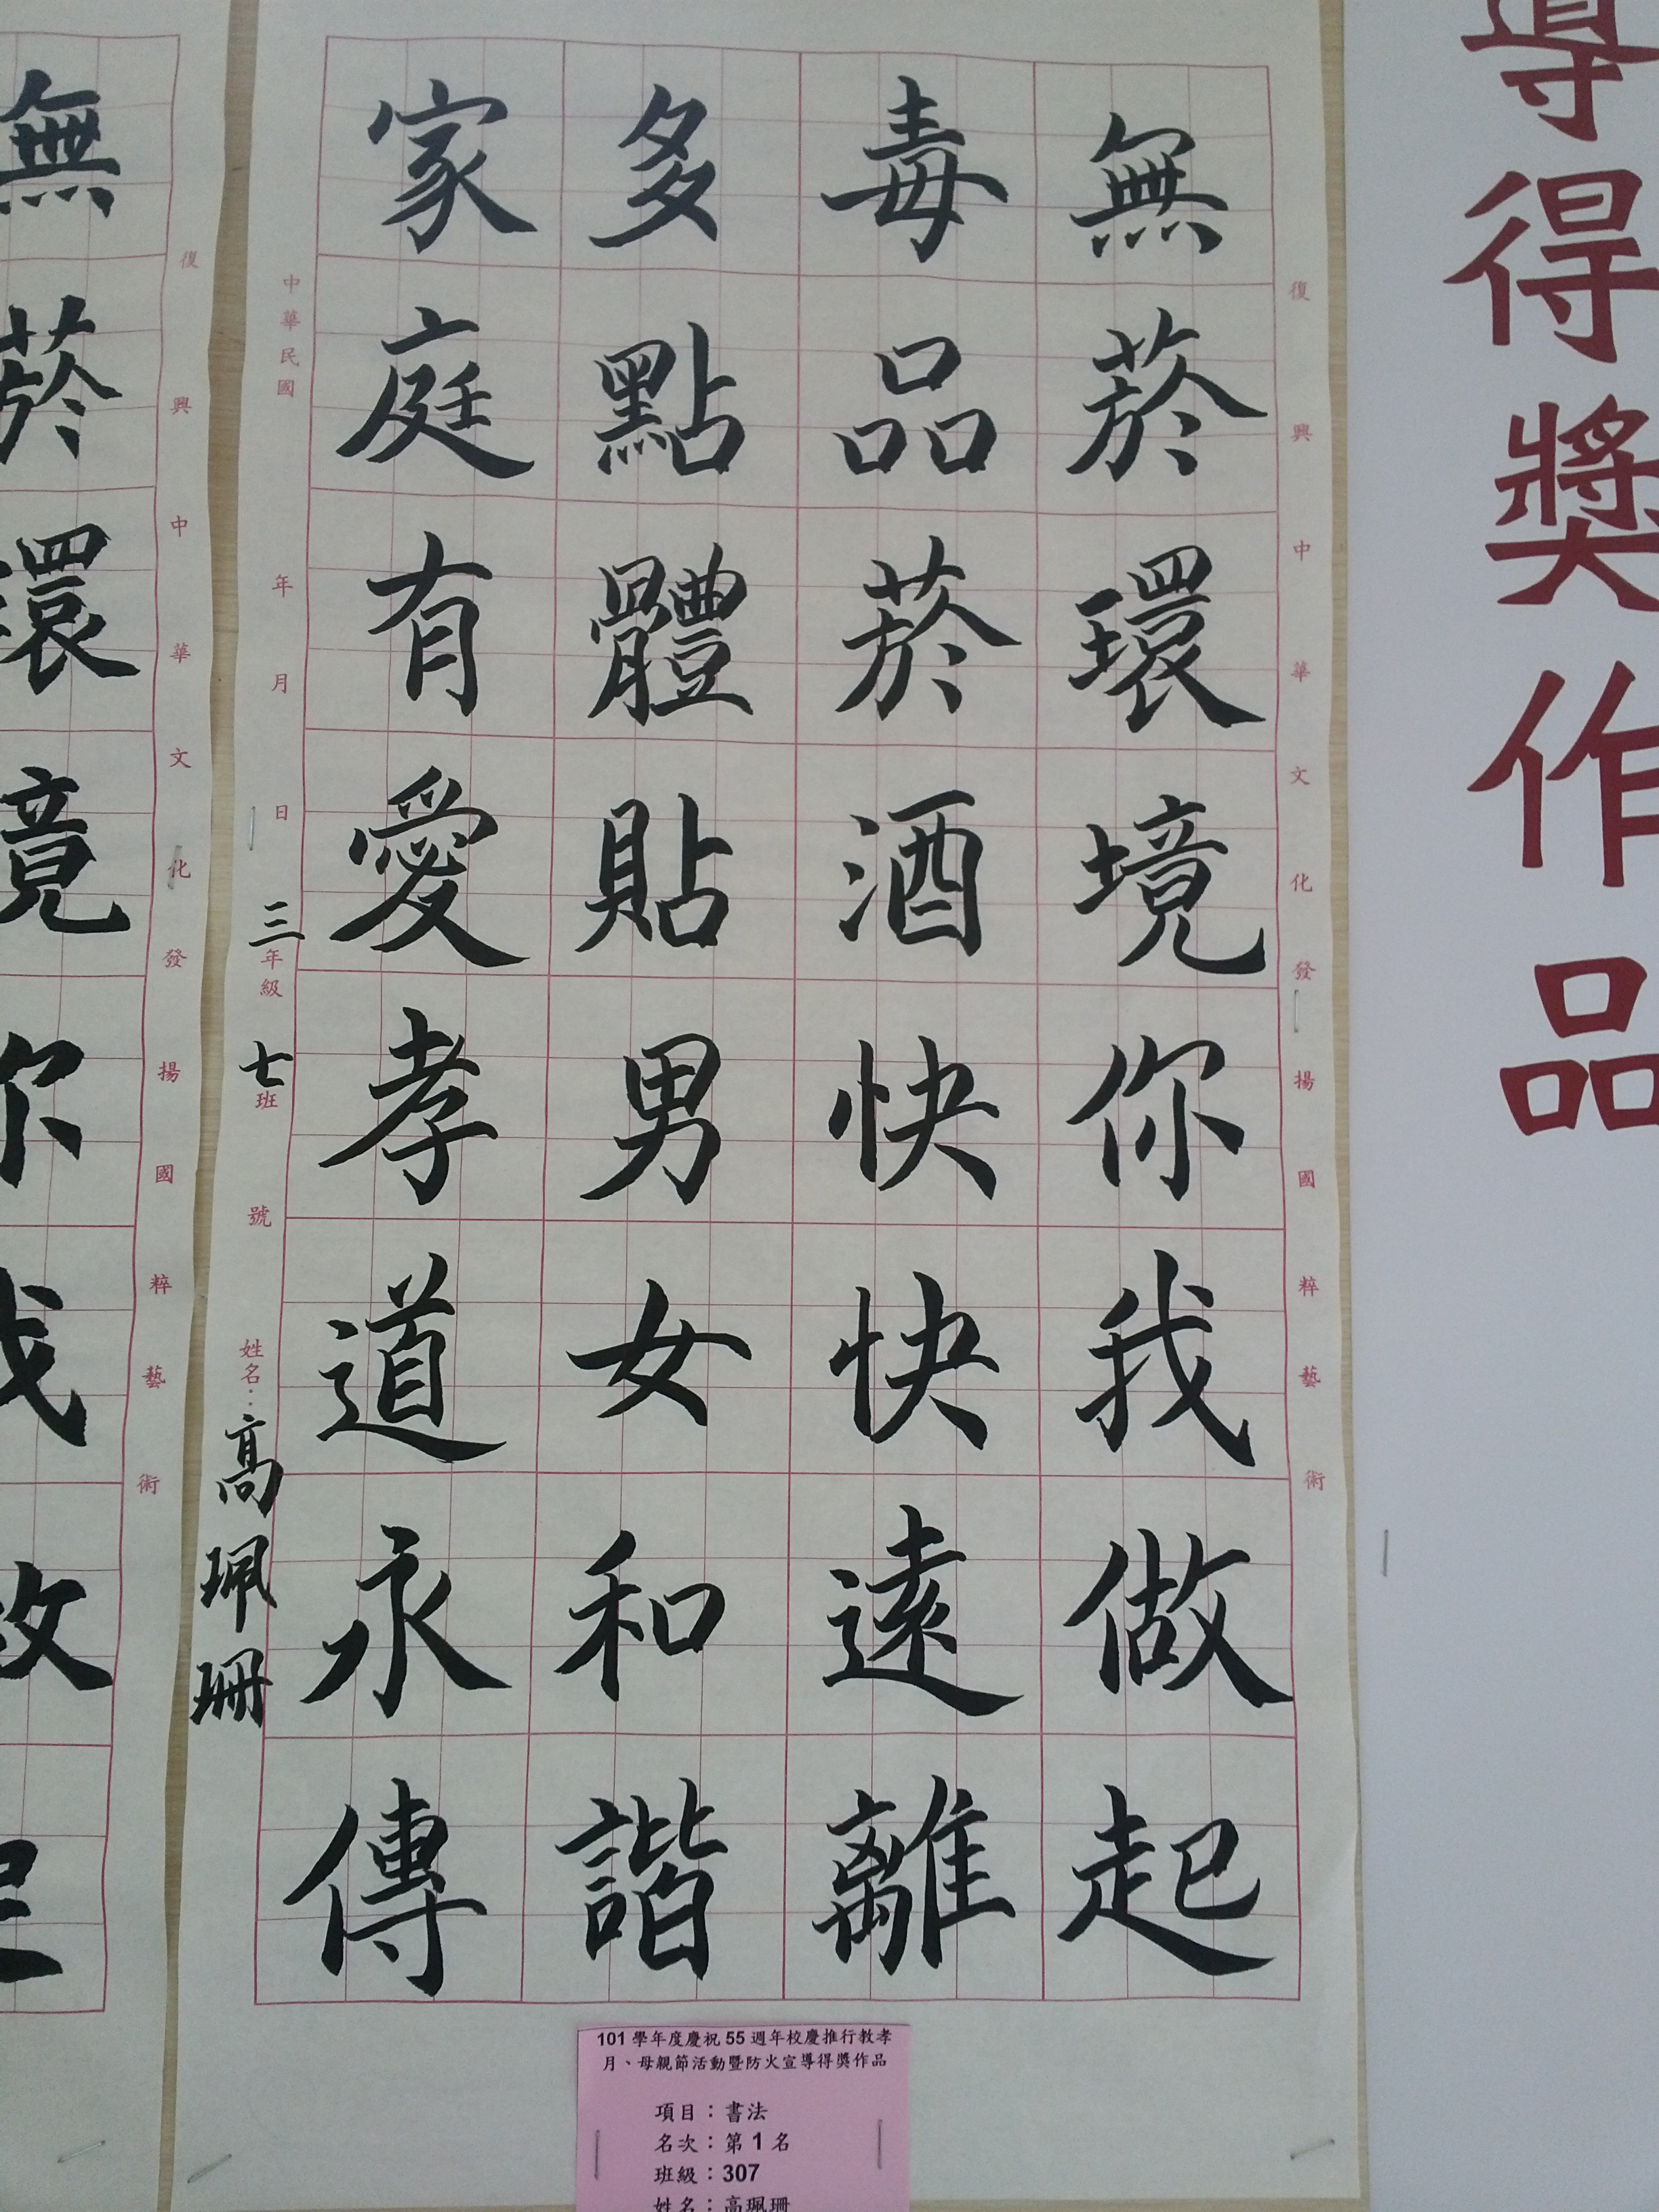 導得獎作品
復興中華文化發揚國粹藝術
無菸環境你我做起
毒品菸酒快快遠離
多點體貼男女和諧
家庭有愛孝道永傳
中華民國 年 月 日 三年級 七班 號 姓名：高珮珊
復興中華文化發揚國粹藝術
無菸環境你我做起
101 學年度慶祝 55 週年校慶推行教孝
月、母親節活動暨防火宣導得獎作品
項目：書法
名次：第 1 名
班級：307
姓名：高珮珊